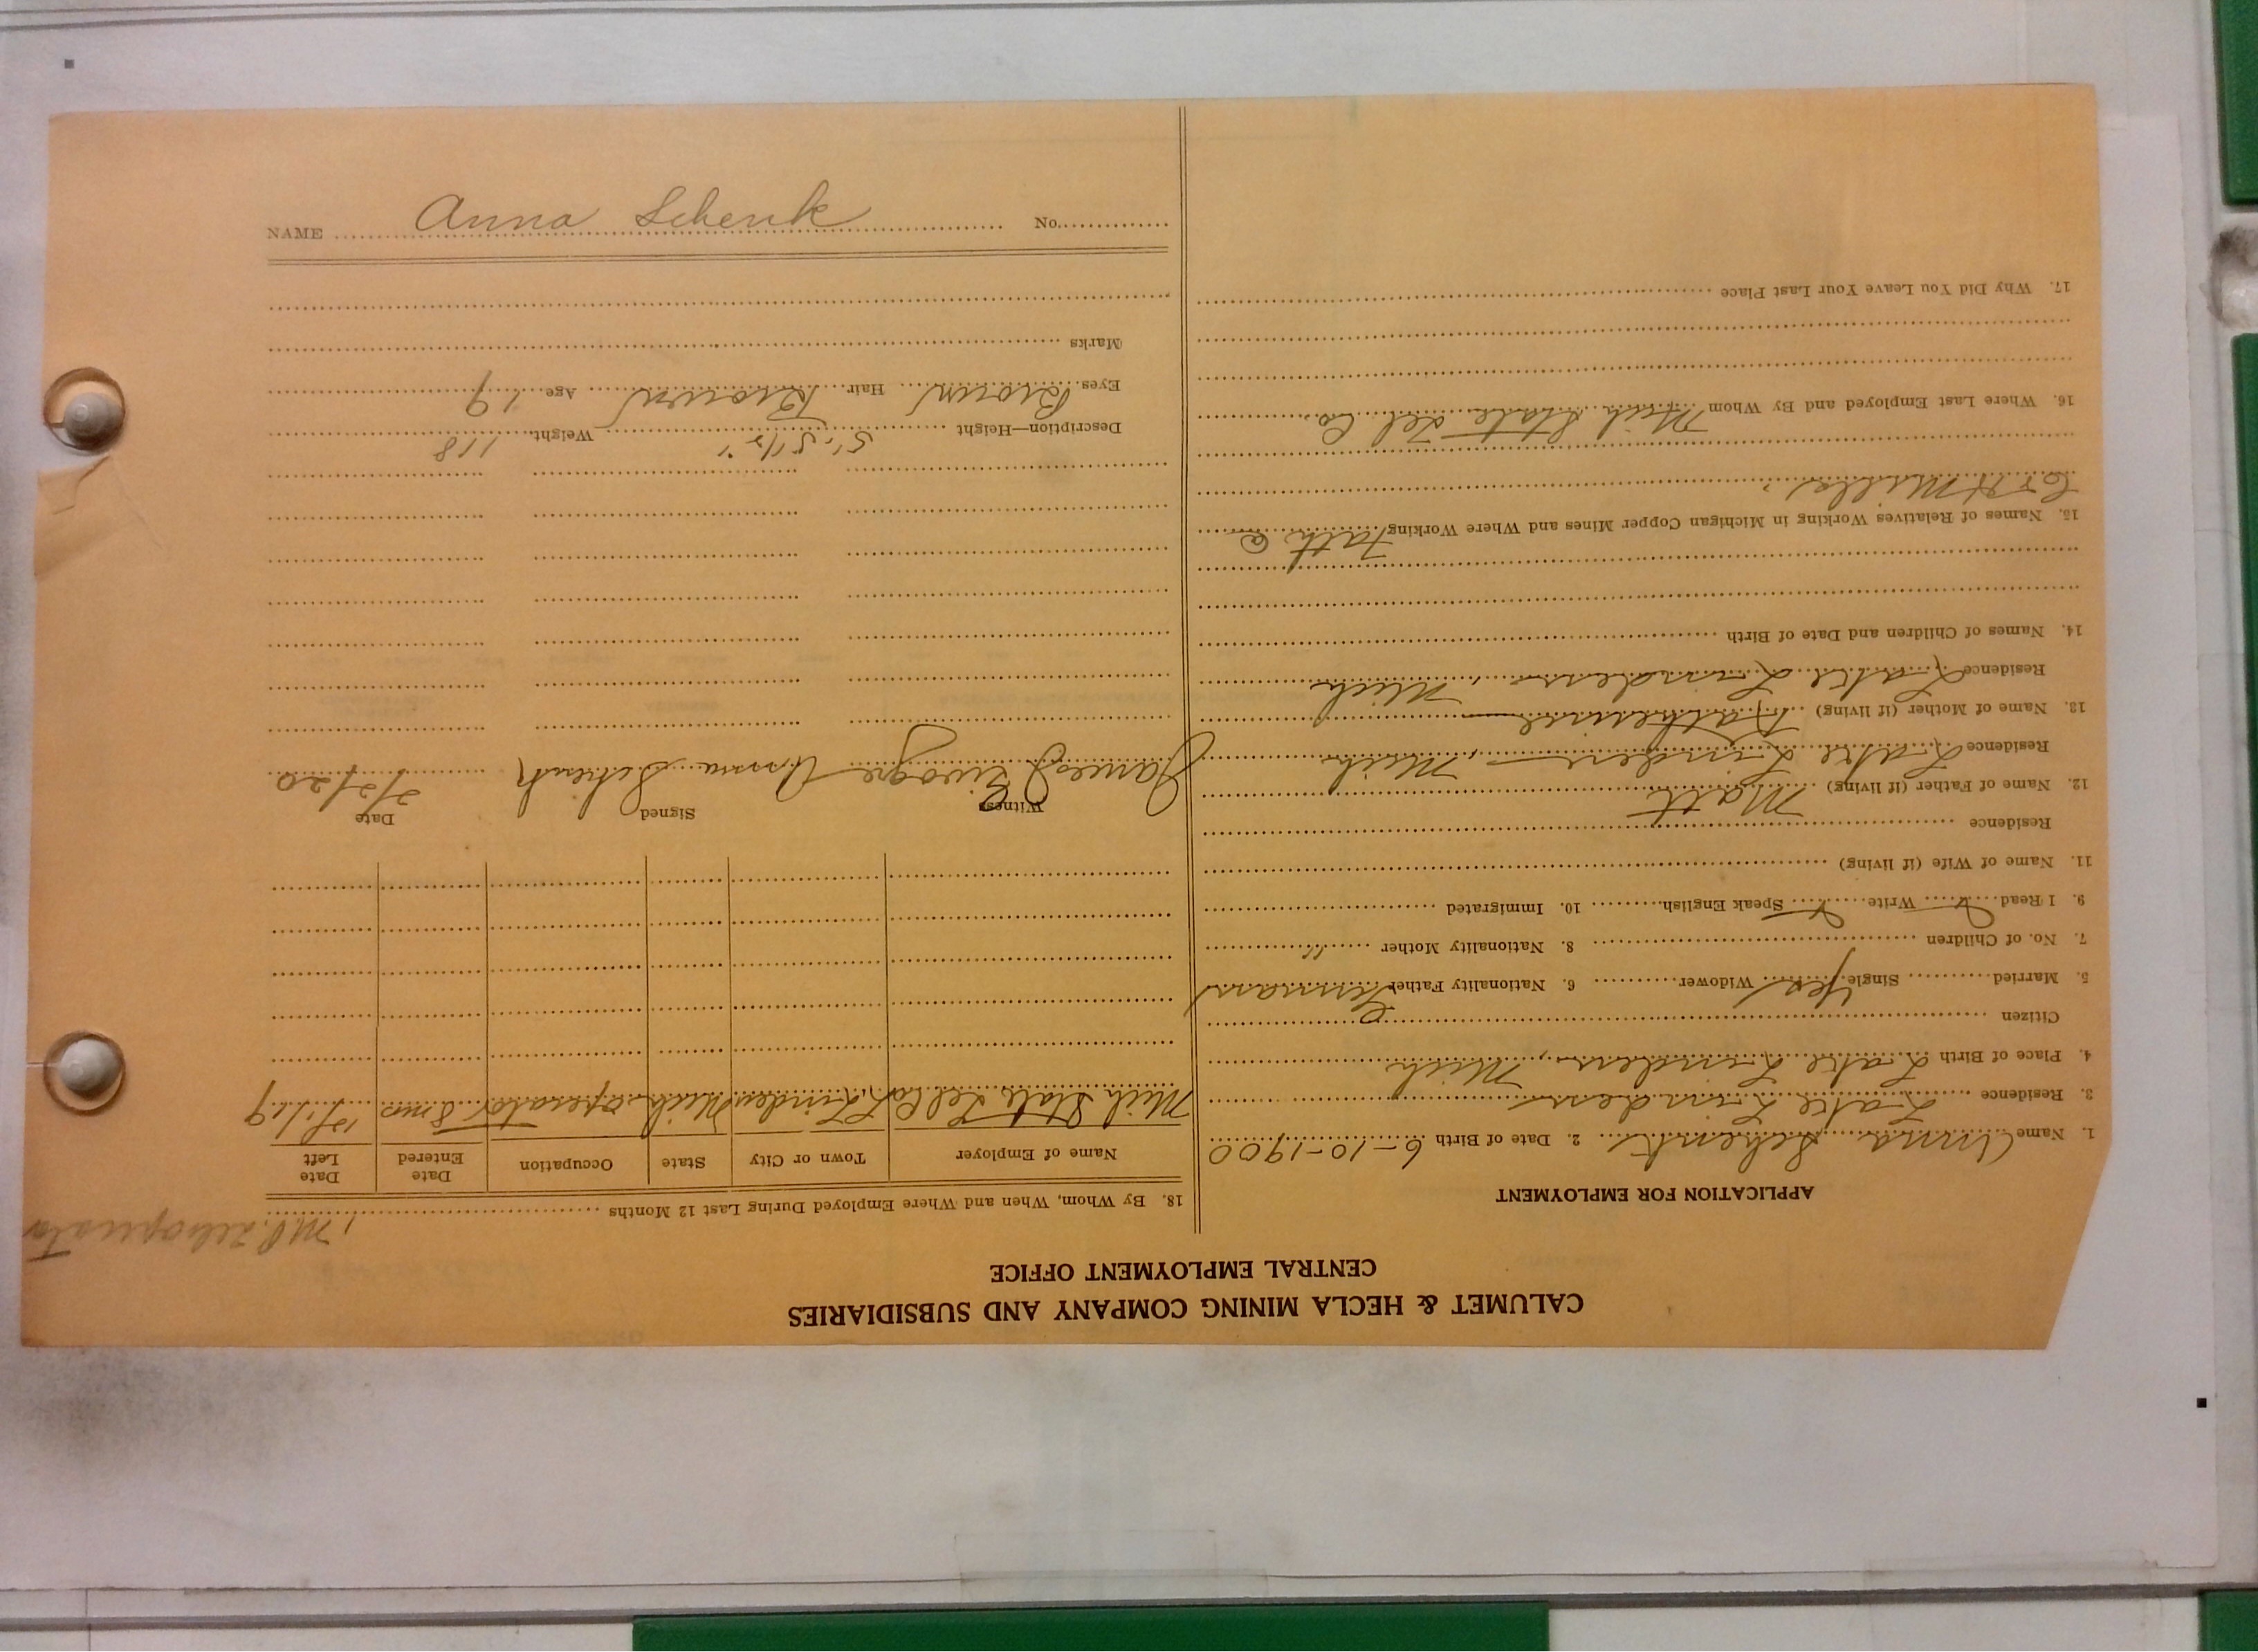 CALUMET & HECLA MINING COMPANY AND SUBSIDIARIES
CENTRAL EMPLOYMENT OFFICE
APPLICATION FOR EMPLOYMENT
1. Name Anna Schenk 2. Date of Birth 6-10-1900
3. Residence Lake Linden
4. Place of Birth Lake Linden, Mich
Citizen
5. Married Single Yes Widower 6. Nationality Father German
7. No. of Children 8. Nationality Mother "
9. I Read Write Speak English 10. Immigrated
11. Name of Wife (if living)
Residence
12. Name of Father (if living) Matt
Residence Lake Linden, Mich
13. Name of Mother (if living) Katherine
Residence Lake Linden, Mich
14. Names of Children and Date of Birth
15. Names of Relatives Working in Michigan Copper Mines and Where Working Fath @
C & H Mills
16. Where Last Employed and By Whom Mich State Tel Co.
17. Why Did You Leave Your Last Place
1 M.P. tel operator
18. By Whom, When and Where Employed During Last 12 Months
Name of Employer Town or City State Occupation Date Entered Date Left
Mich State Tel Co L. Linden Mich operator 8 mo
Witness Signed Date
James Anna Schenk 2/2/20
Description—Height 5' 5 1/2" Weight 118
Eyes Brown Hair Brown Age 19
Marks
NAME Anna Schenk No.